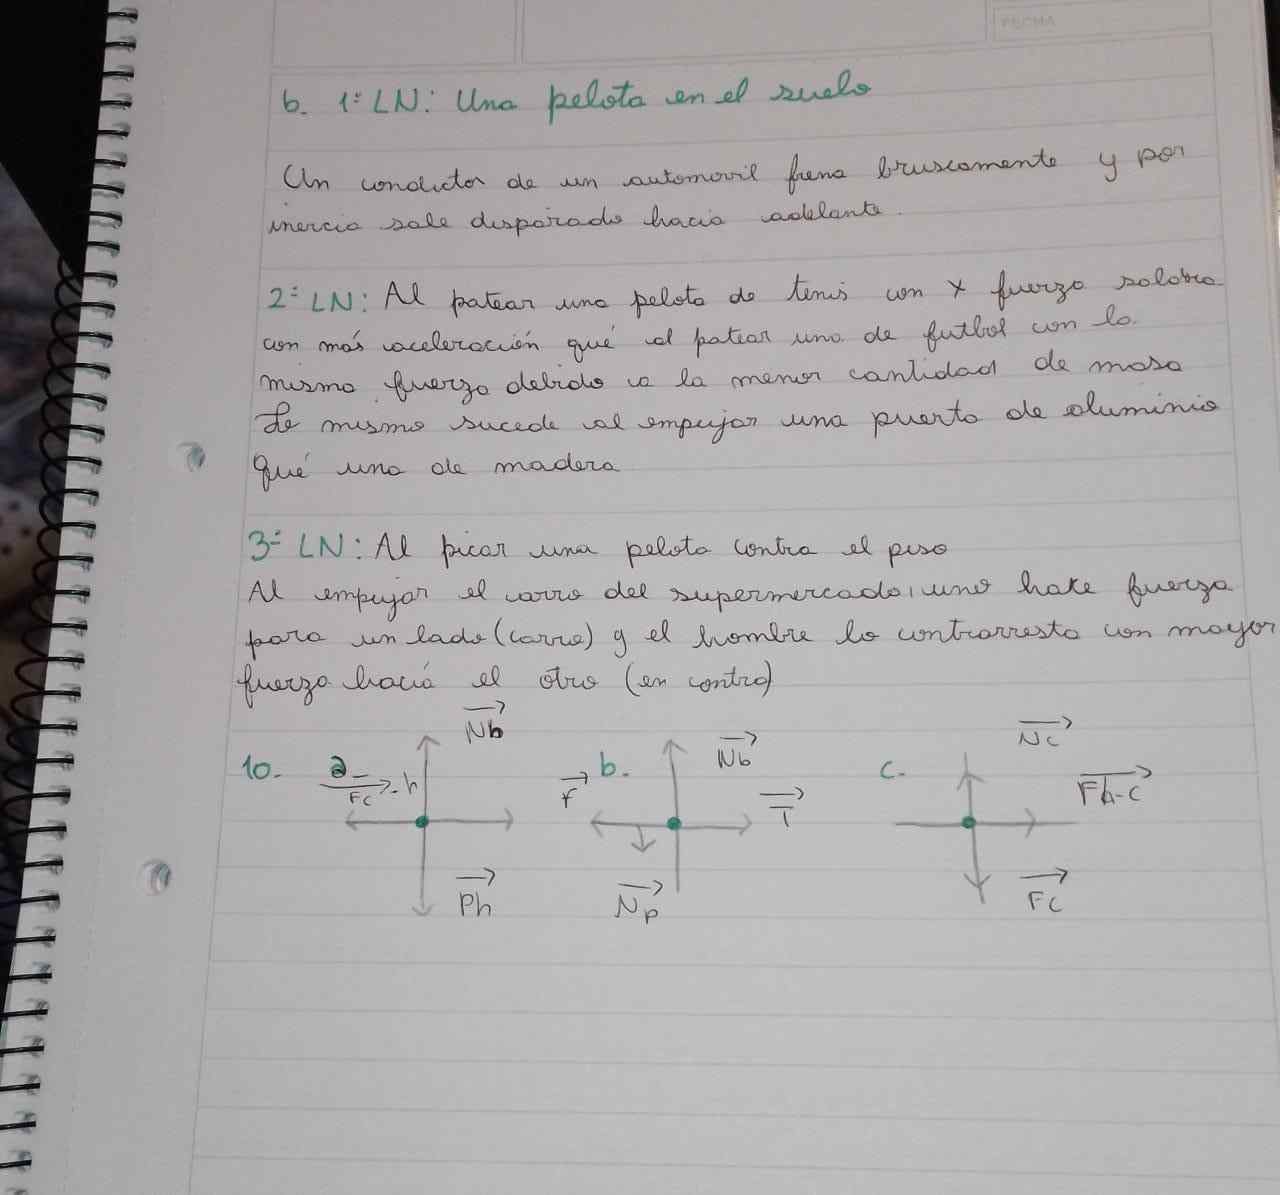 FECHA
b. 1º LN: Una pelota en el suelo
Un conductor de un automovil frena bruscamente y por
inercia sale disparado hacia adelante.
2º LN: Al patear una pelota de tenis con x fuerza saldra
con más aceleración qué al patear una de futbol con la
misma fuerza debido a la menor cantidad de masa
Lo mismo sucede al empujar una puerta de aluminio
qué una de madera
3º LN: Al picar una pelota contra el piso
Al empujar el carro del supermercado, uno hake fuerza
para un lado (carro) y el hombre lo contrarresta con mayor
fuerza hacia el otro (en contra)
10. a- Fc-h Nb Ph
b. f Nb T Np
c. Nc Fh-c Fc